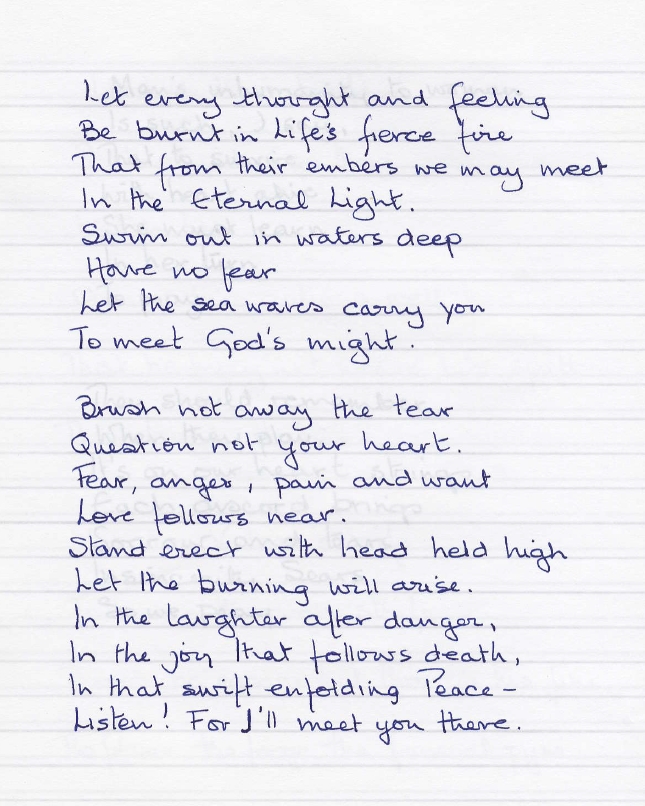 Let every thought and feeling
Be burnt in Life's fierce fire
That from their embers we may meet
In the Eternal Light.
Swim out in waters deep
Have no fear
Let the sea waves carry you
To meet God's might.
Brush not away the tear
Question not your heart.
Fear, anger, pain and want
Love follows near.
Stand erect with head held high
Let the burning will arise.
In the laughter after danger,
In the joy that follows death,
In that swift enfolding Peace –
Listen! For I'll meet you there.